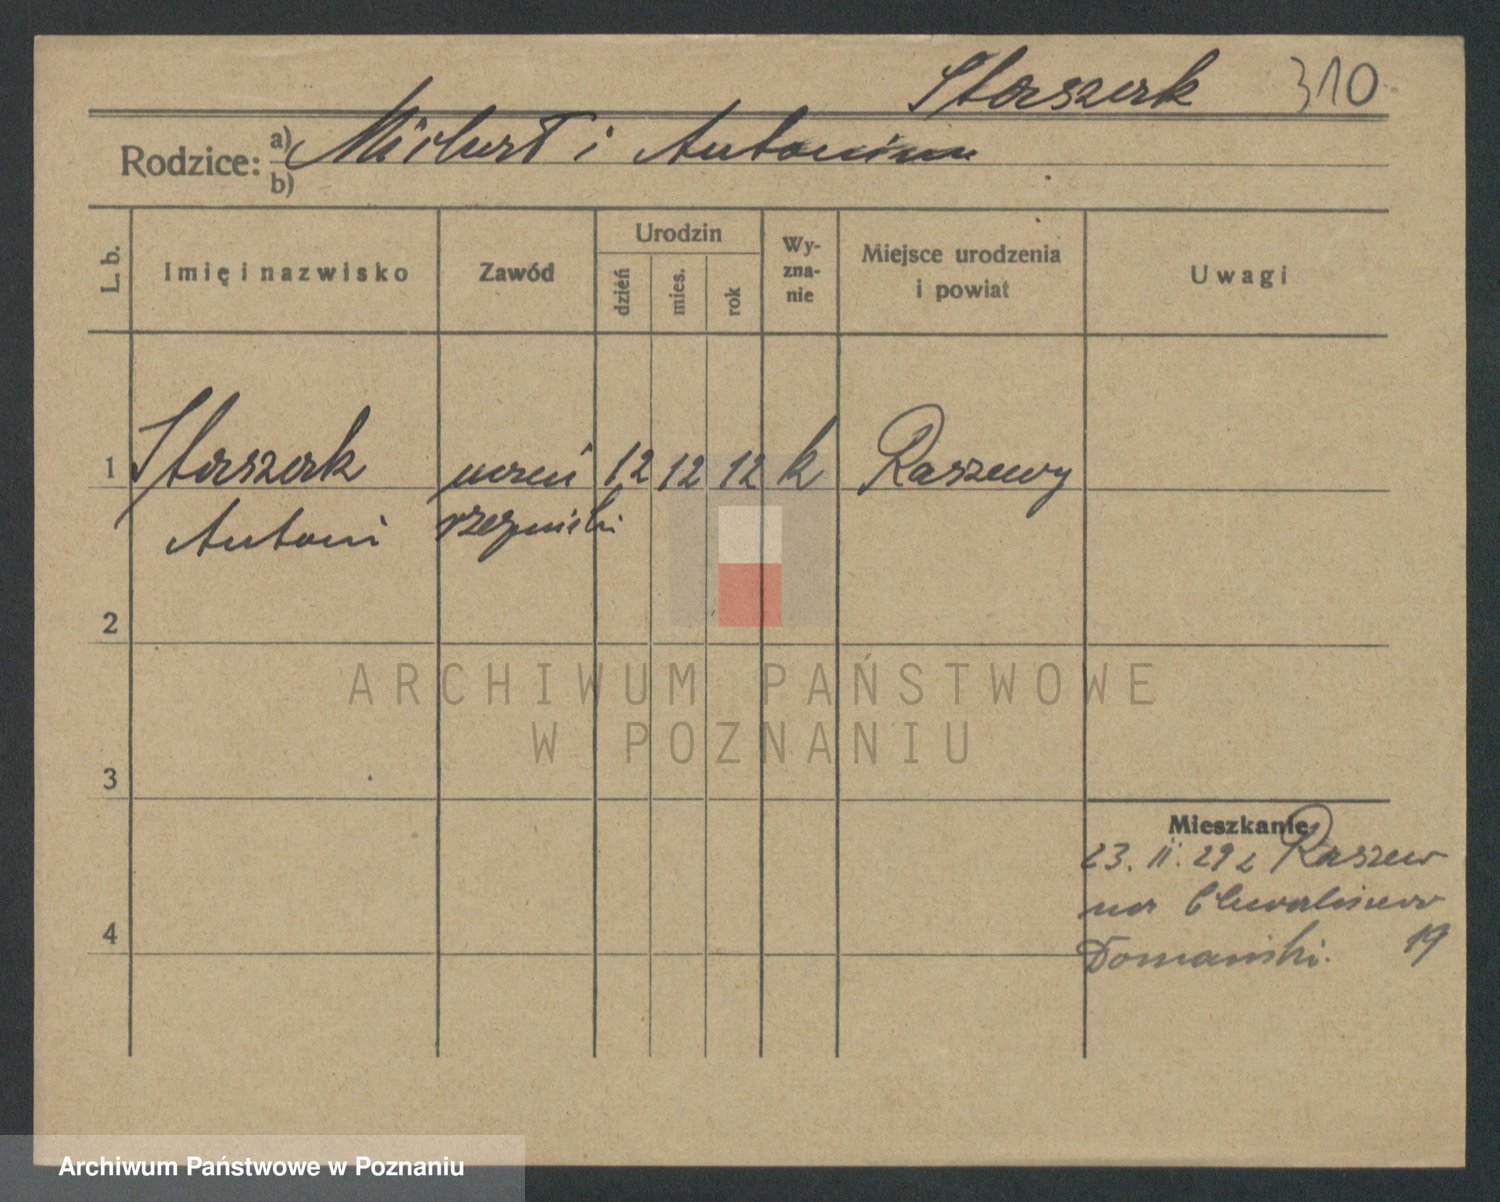 Staszak 310
Rodzice: a) Michał i Antonina
b)
L. b. Imię i nazwisko Zawód Urodzin dzień mies. rok Wyznanie Miejsce urodzenia i powiat Uwagi
1 Staszak uczeń 12 12 12 k Raszewy
Antoni rzeźnicki
2
ARCHIWUM PAŃSTWOWE
W POZNANIU
3
Mieszkanie
23. II. 29 z Raszew
na
Domański. 19
4
Archiwum Państwowe w Poznaniu